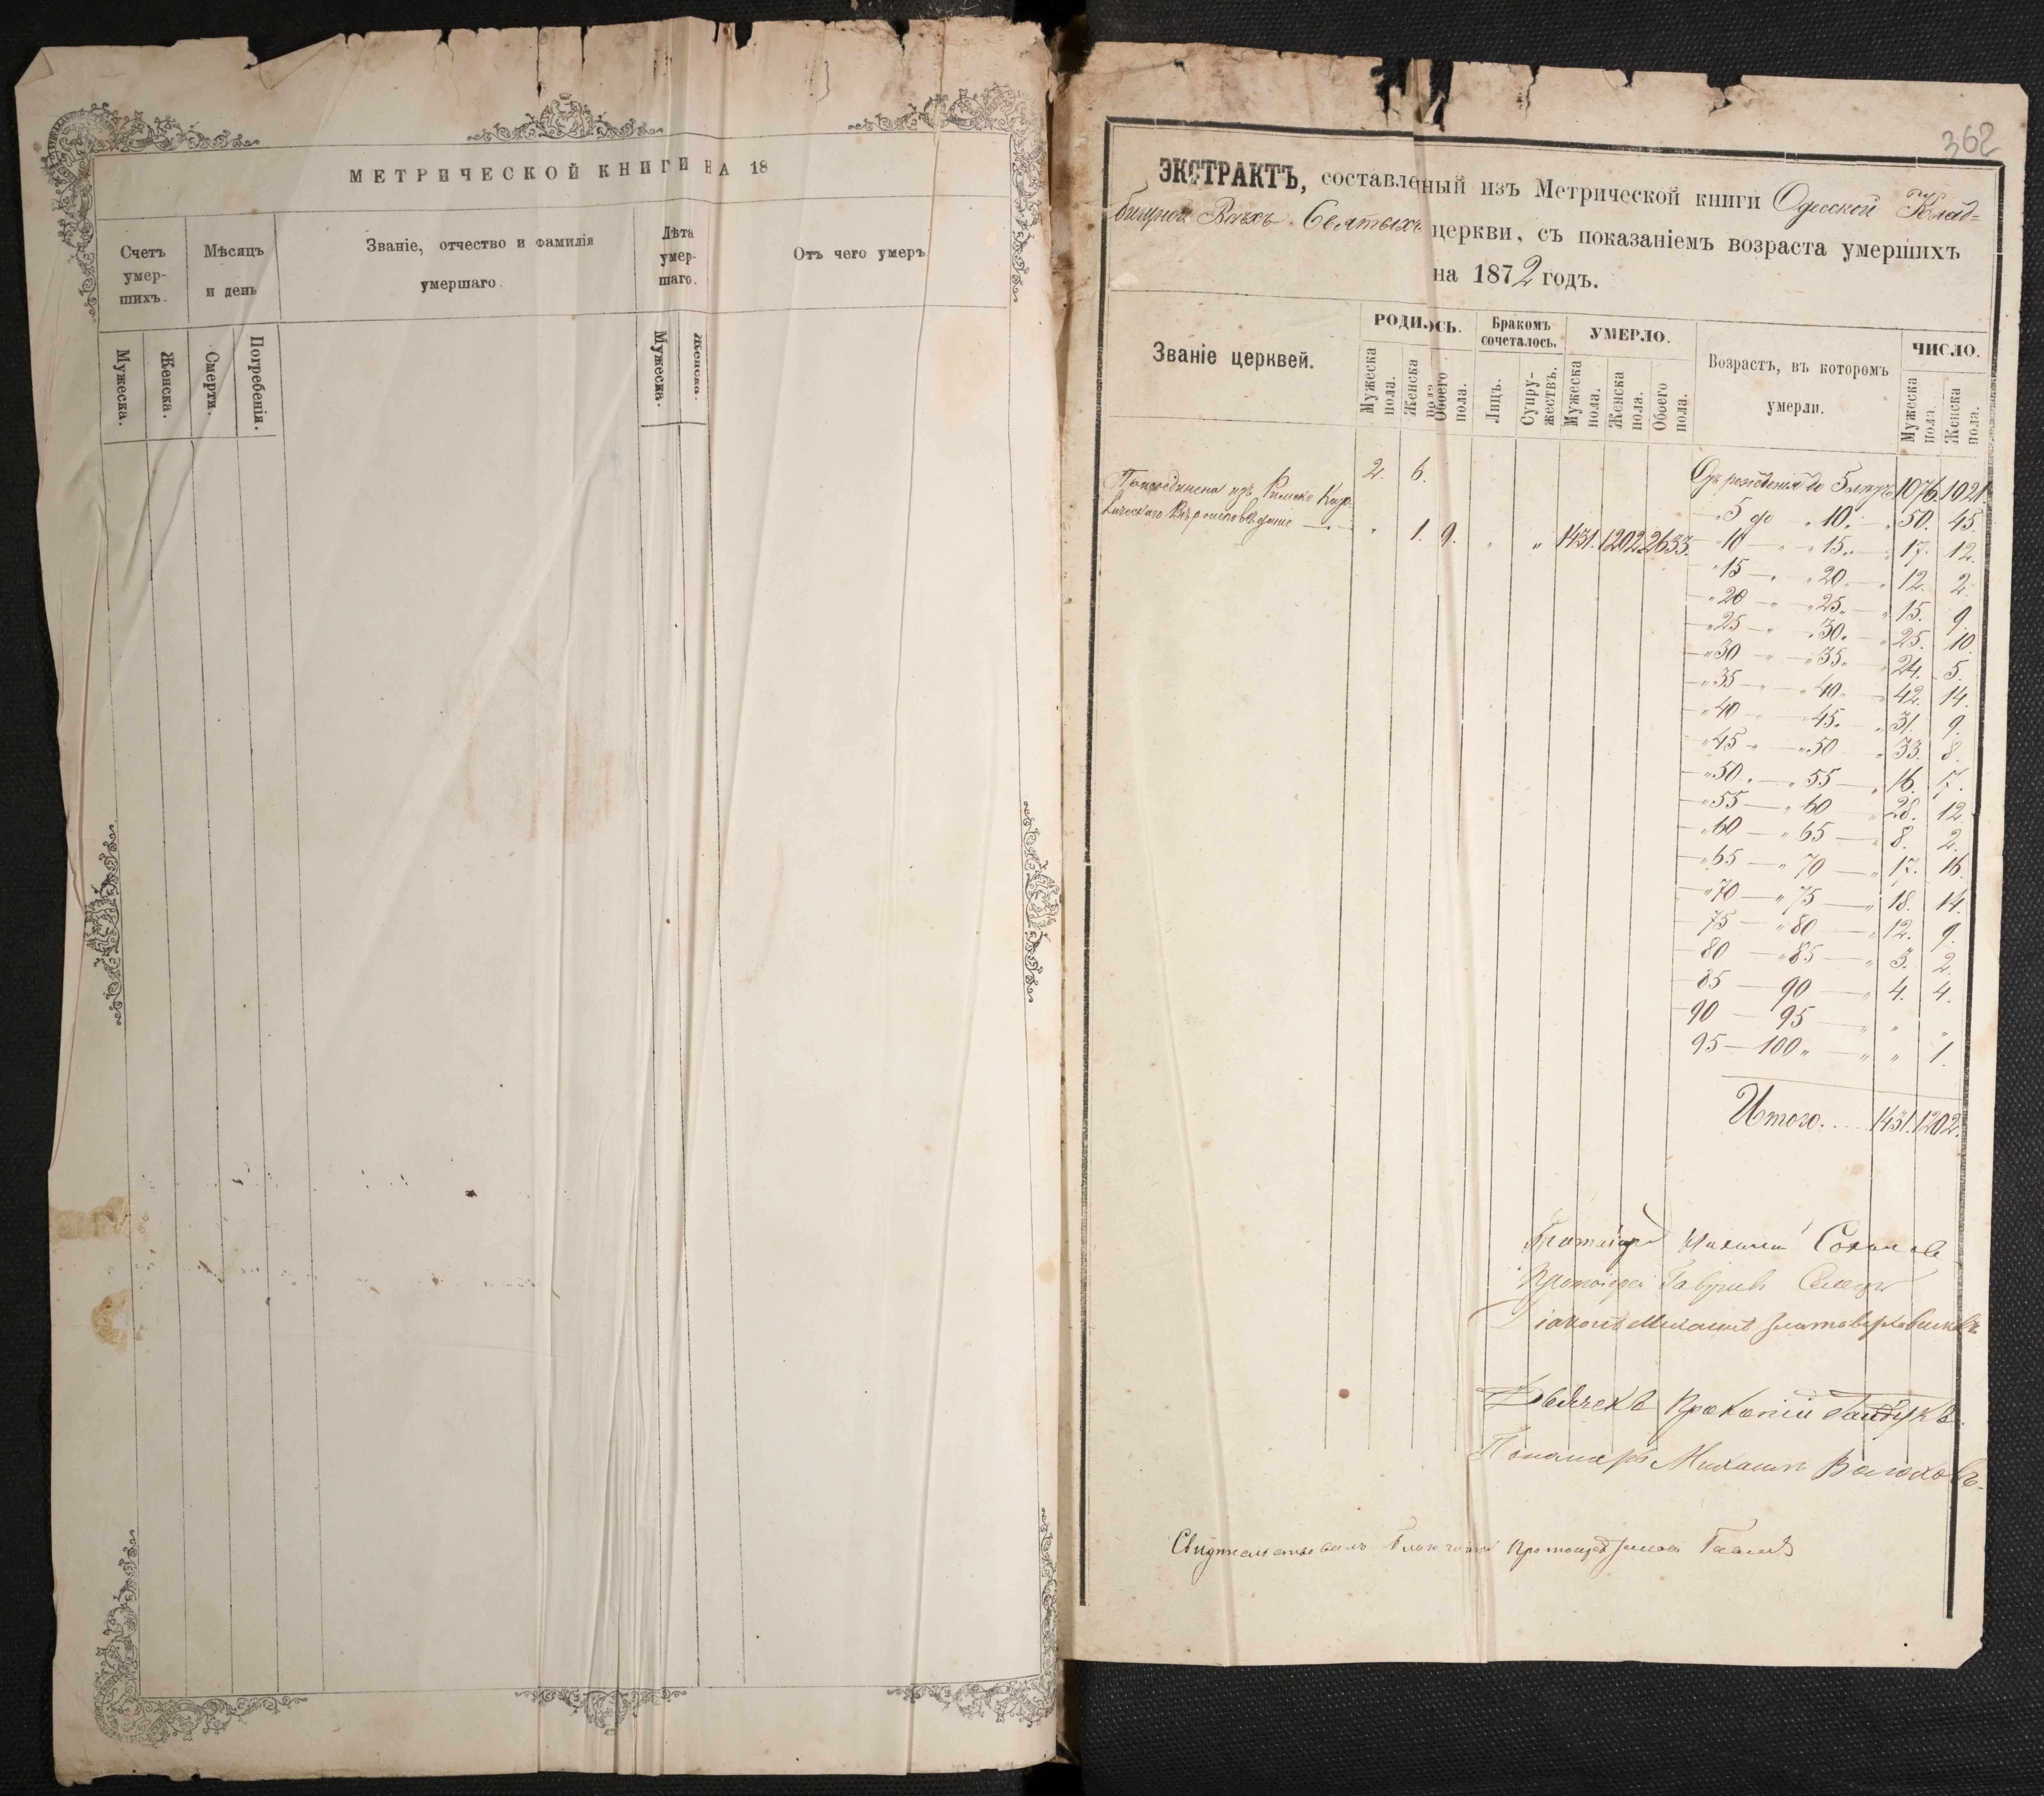 МЕТРИЧЕСКОЙ КНИГИ НА 18
Счетъ умер-шихъ. Мѣсяцъ и день Званіе, отчество и фамилія умершаго. Лѣта умер-шаго. Отъ чего умеръ
Мужеска. Женска. Смерти. Погребенія. Мужеска. Женска.
362
ЭКСТРАКТЪ, составленый изъ Метрической книги Одесской Клад-
бищной Всѣхъ Святыхъ церкви, съ показаніемъ возраста умершихъ
на 1872 годъ.
Званіе церквей. РОДИЛОСЬ. Бракомъ сочеталось. УМЕРЛО. Возрастъ, въ которомъ умерли. ЧИСЛО.
Мужеска пола. Женска пола. Обоего пола. Лицъ. Супру-жествъ. Мужеска пола. Женска пола. Обоего пола. Мужеска пола. Женска пола.
2. 6. Отъ рожденія до 5 лѣтъ 1076 1021.
Присоединена изъ Римско Като-
лическаго Вѣроисповѣданія — „ 1. 9. „ „ 1431. 1202. 2633.
„ 5 до „ 10. „ 50. 45.
„ 10 — „ 15. „ 17. 12.
„ 15 — „ 20. „ 12. 2.
„ 20 — „ 25. „ 15. 9.
„ 25 — „ 30. „ 25. 10.
„ 30 — „ 35. „ 24. 5.
„ 35 — „ 40. „ 42. 14.
„ 40 — „ 45. „ 31. 9.
„ 45 — „ 50 „ 33. 8.
„ 50 — „ 55 — „ 16. 7.
„ 55 — „ 60 — „ 28. 12.
„ 60 — „ 65 — „ 8. 2.
„ 65 — „ 70 — „ 17. 16.
„ 70 — „ 75 — „ 18. 14.
75 — „ 80 — „ 12. 9.
80 — „ 85 — „ 3. 2.
85 — 90 — „ 4. 4.
90 — 95 — „ „ „
95 — 100 „ — „ „ 1.
Итого.... 1431. 1202.
Протоіерей Михаилъ
Протоіерей Гавріилъ
Діаконъ Михаилъ
Дьячекъ Прокопій Гайдукъ.
Пономарь Михаилъ Волоховъ.
Свидѣтельствовалъ Благочинный Протоіерей Павелъ